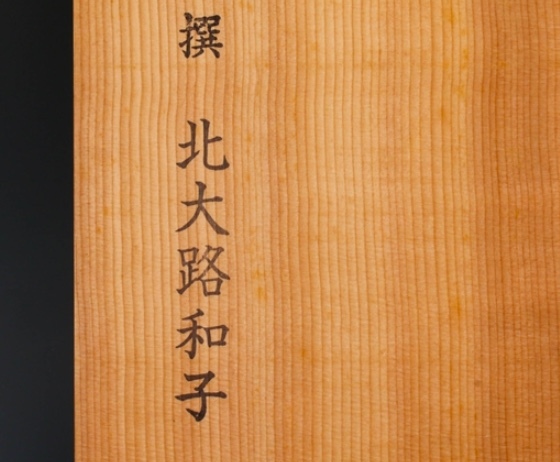 撰　北大路和子